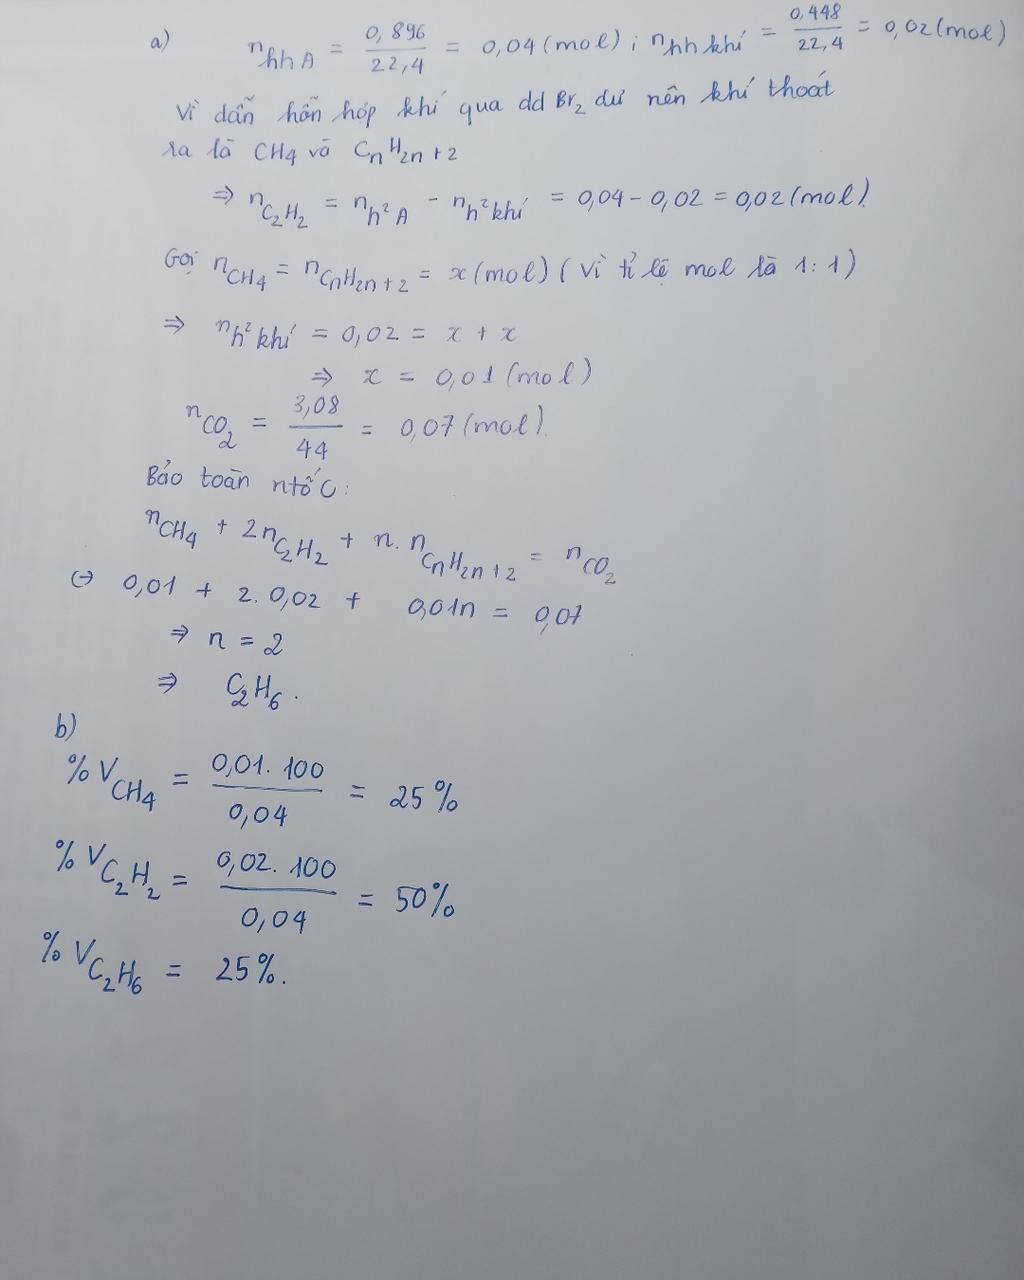 a) n hh A = 0,896 / 22,4 = 0,04 (mol) ; n hh khí = 0,448 / 22,4 = 0,02 (mol)
Vì dẫn hỗn hợp khí qua dd Br2 dư nên khí thoát
ra là CH4 và CnH2n+2
⇒ nC2H2 = nh²A - nh²khí = 0,04 - 0,02 = 0,02 (mol).
Gọi nCH4 = nCnH2n+2 = x (mol) (Vì tỉ lệ mol là 1:1)
⇒ nh²khí = 0,02 = x + x
⇒ x = 0,01 (mol)
nCO2 = 3,08 / 44 = 0,07 (mol).
Bảo toàn ntố C:
nCH4 + 2nC2H2 + n.nCnH2n+2 = nCO2
(-) 0,01 + 2.0,02 + 0,01n = 0,07
⇒ n = 2
⇒ C2H6.
b)
%VCH4 = 0,01.100 / 0,04 = 25%
%VC2H2 = 0,02.100 / 0,04 = 50%
%VC2H6 = 25%.